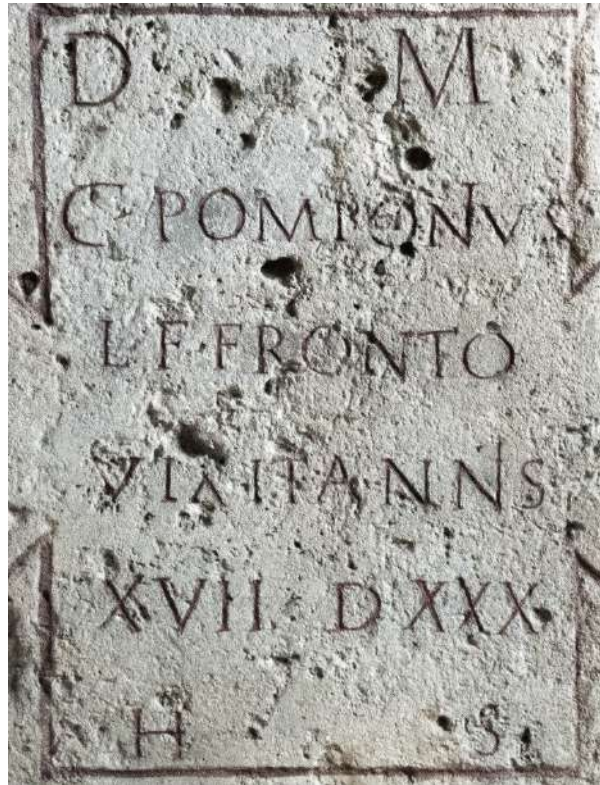 D M
C POMPONVS
L F FRONTO
VIXIT ANNS
XVII D XXX
H S